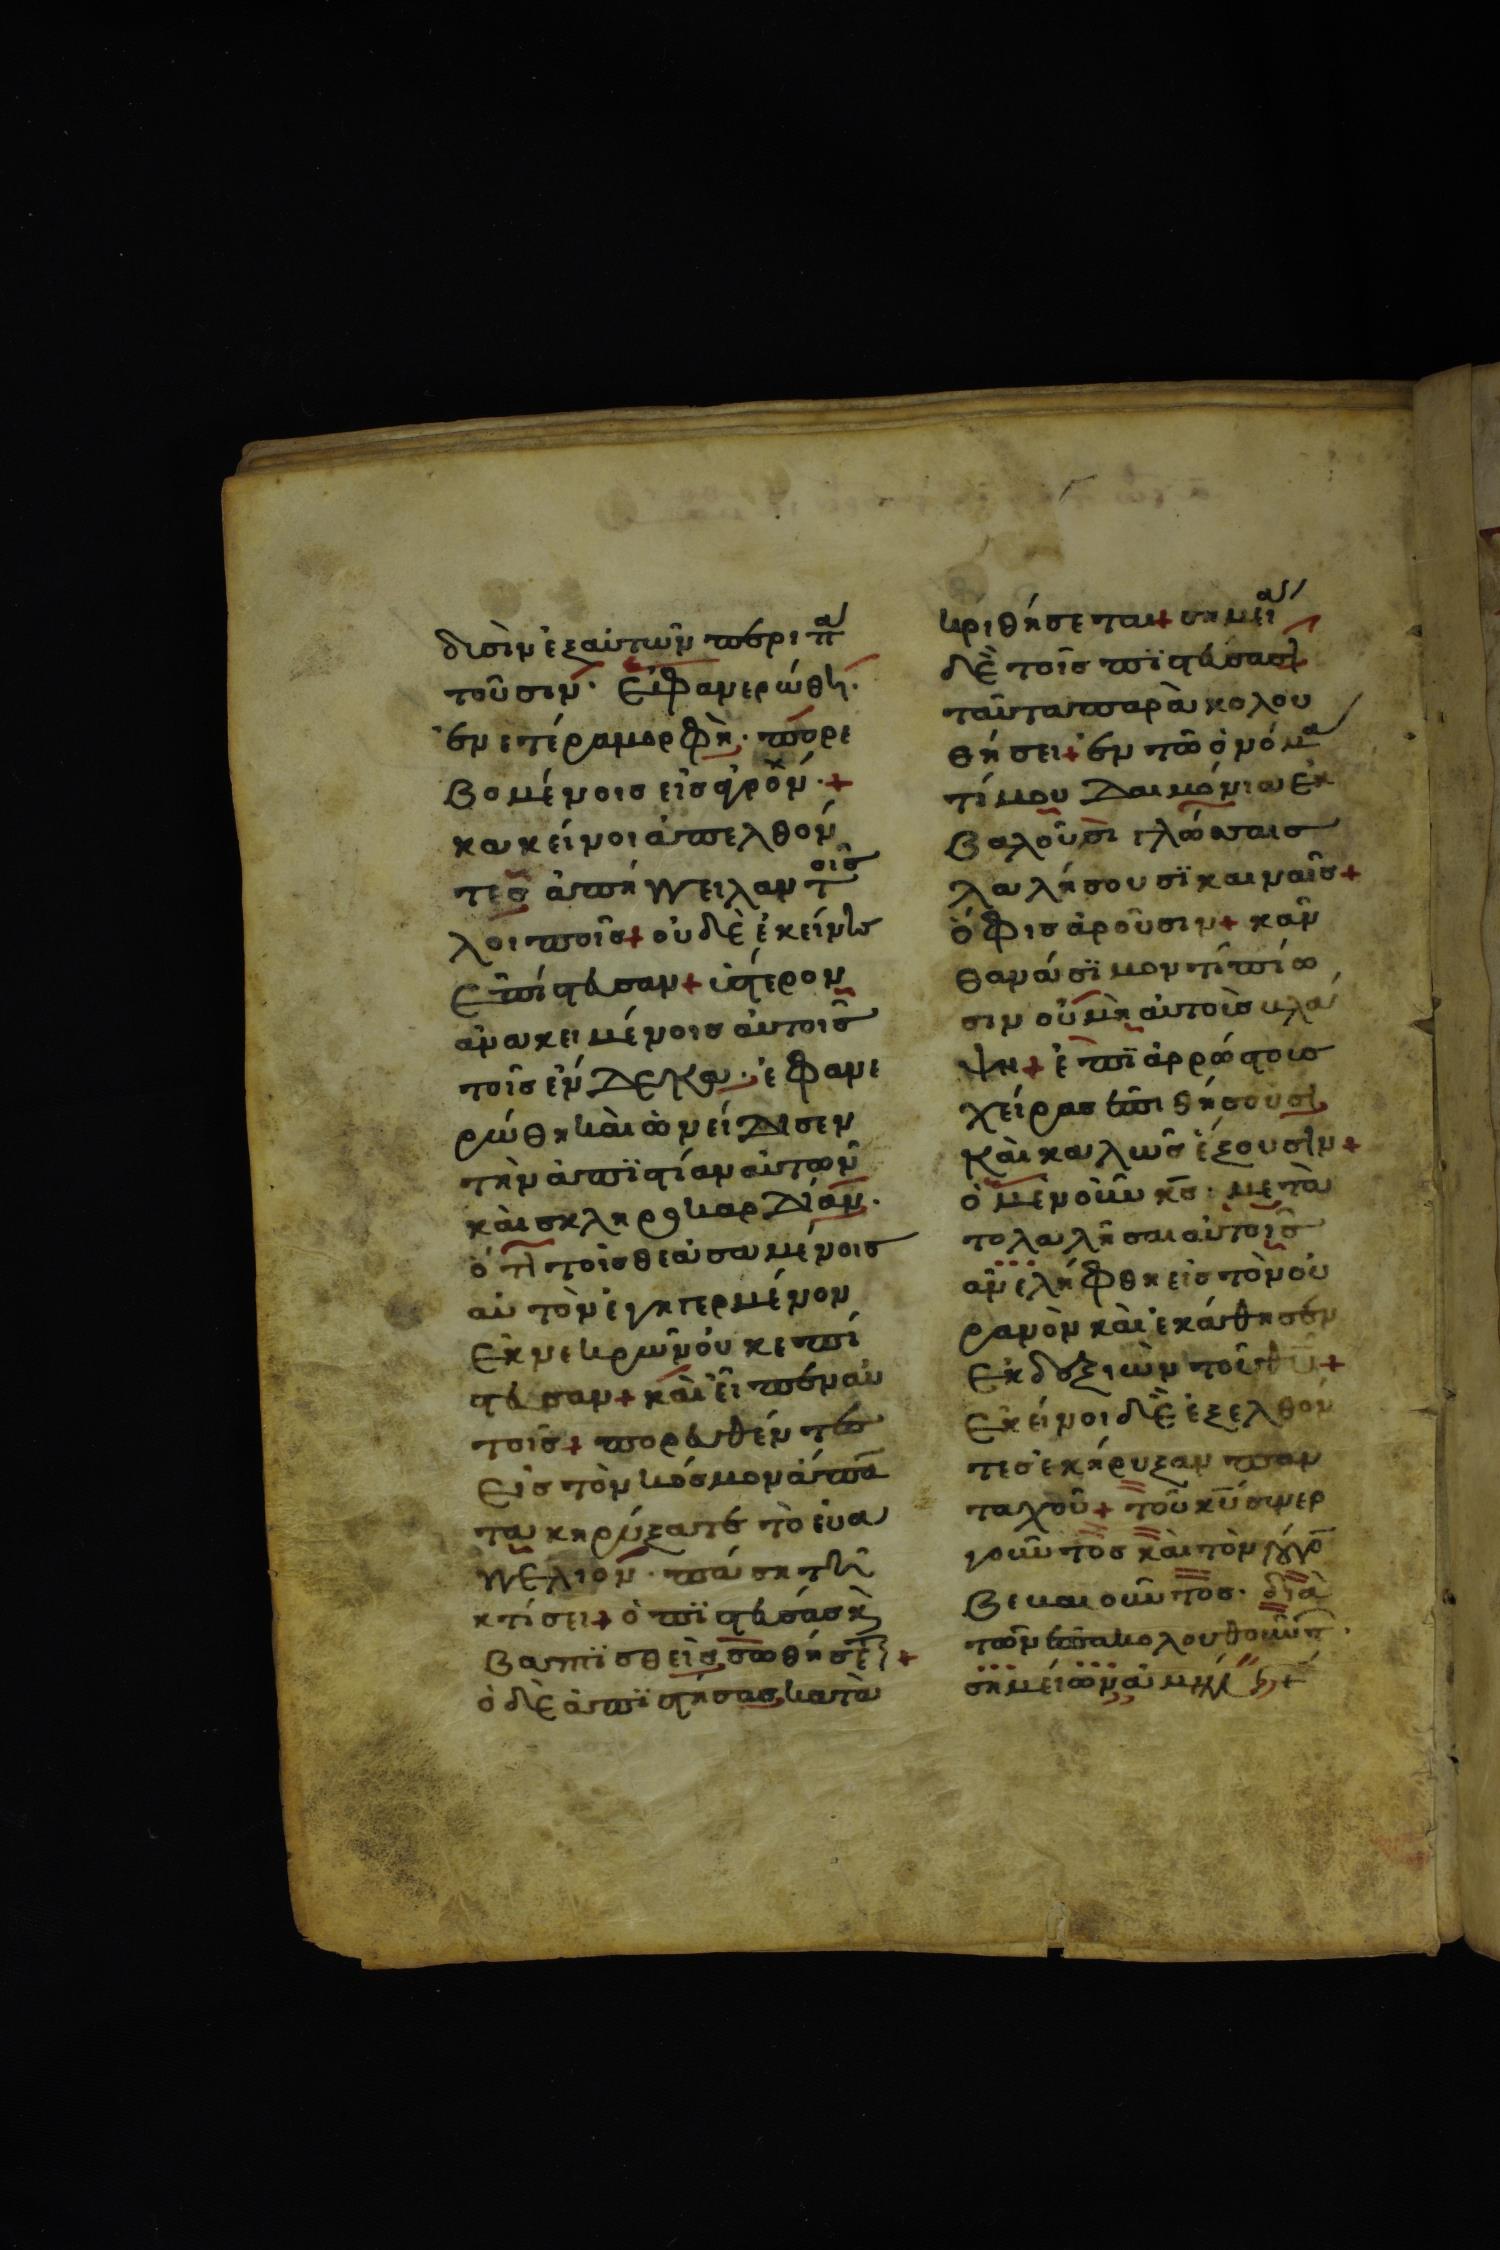 δισὶν ἐξ αὐτῶν περιπα
τοῦσιν· ἐφανερώθη·
ἐν ετέρα μορφῆ· πορε
βομένοισ εἰσ ἀγρὸν· +
κακείνοι ἀπελθόν
τεσ ἀπήγγειλαν τοῖσ
λοιποῖσ + οὐδὲ ἐκείνοισ
ἐπίστευσαν + ὕστερον
ἀνακειμένοισ αὐτοῖσ
τοῖσ ἕνδεκα· ἐφανε
ρώθη καὶ ὀνείδισεν
τὴν ἀπϊστίαν αὐτων
καὶ σκληροκαρδίαν·
ὅτι τοῖσ θεασαμένοισ
αὐτὸν ἐγηγερμένον
ἐκ νεκρῶν οὐκ επί
στευσαν + καὶ εἶπεν αὐ
τοῖσ + πορευθέντεσ
εἰσ τὸν κόσμον ἅπαν
τα κηρύξατε τὸ εὐα
γγέλιον· πάση τῆ
κτίσει + ὁ πϊστεύσασ κὲ
βαπτϊσθεὶσ σωθήσεται +
ὁ δὲ ἀπϊστήσασ κατὰ
κριθήσεται + σημεῖα
δὲ τοῖσ πϊστεύσασι
ταῦτα παρὰκολου
θήσει + ἐν τῶ ὀνόμα
τί μου δαιμόνια ἐκ
βαλοῦσι γλώσσαισ
λαλήσουσϊ καιναῖσ +
ὄφισ ἀροῦσιν + κἀν
θανάσϊμον τὶ πίω
σιν οὐ μὴ αὐτοὶσ βλά
ψη + ἐπϊ ἀρρώστοισ
χείρασ ἐπιθήσουσι
καὶ καλῶσ ἕξουσιν +
ὁ μὲν οὖν κσ· μετὰ
το λαλῆσαι αὐτοῖσ
ἀνελήφθη εἰσ τὸν οὐ
ρανὸν καὶ ἐκάθησεν
ἐκ δεξιῶν τοῦ θυ +
ἐκείνοι δὲ ἐξελθόν
τεσ ἐκήρυξαν παν
ταχοῦ + τοῦ κυ συνερ
γοῦντοσ καὶ τὸν λόγον
βεκαιοῦντοσ· διὰ
τῶν ἐπακολουθοῦντ
σημείων ἀμήν +